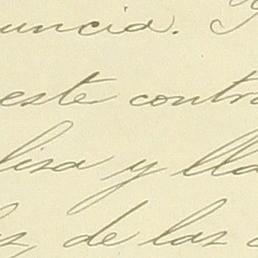 uncia.
este contra
liza y lla
de las